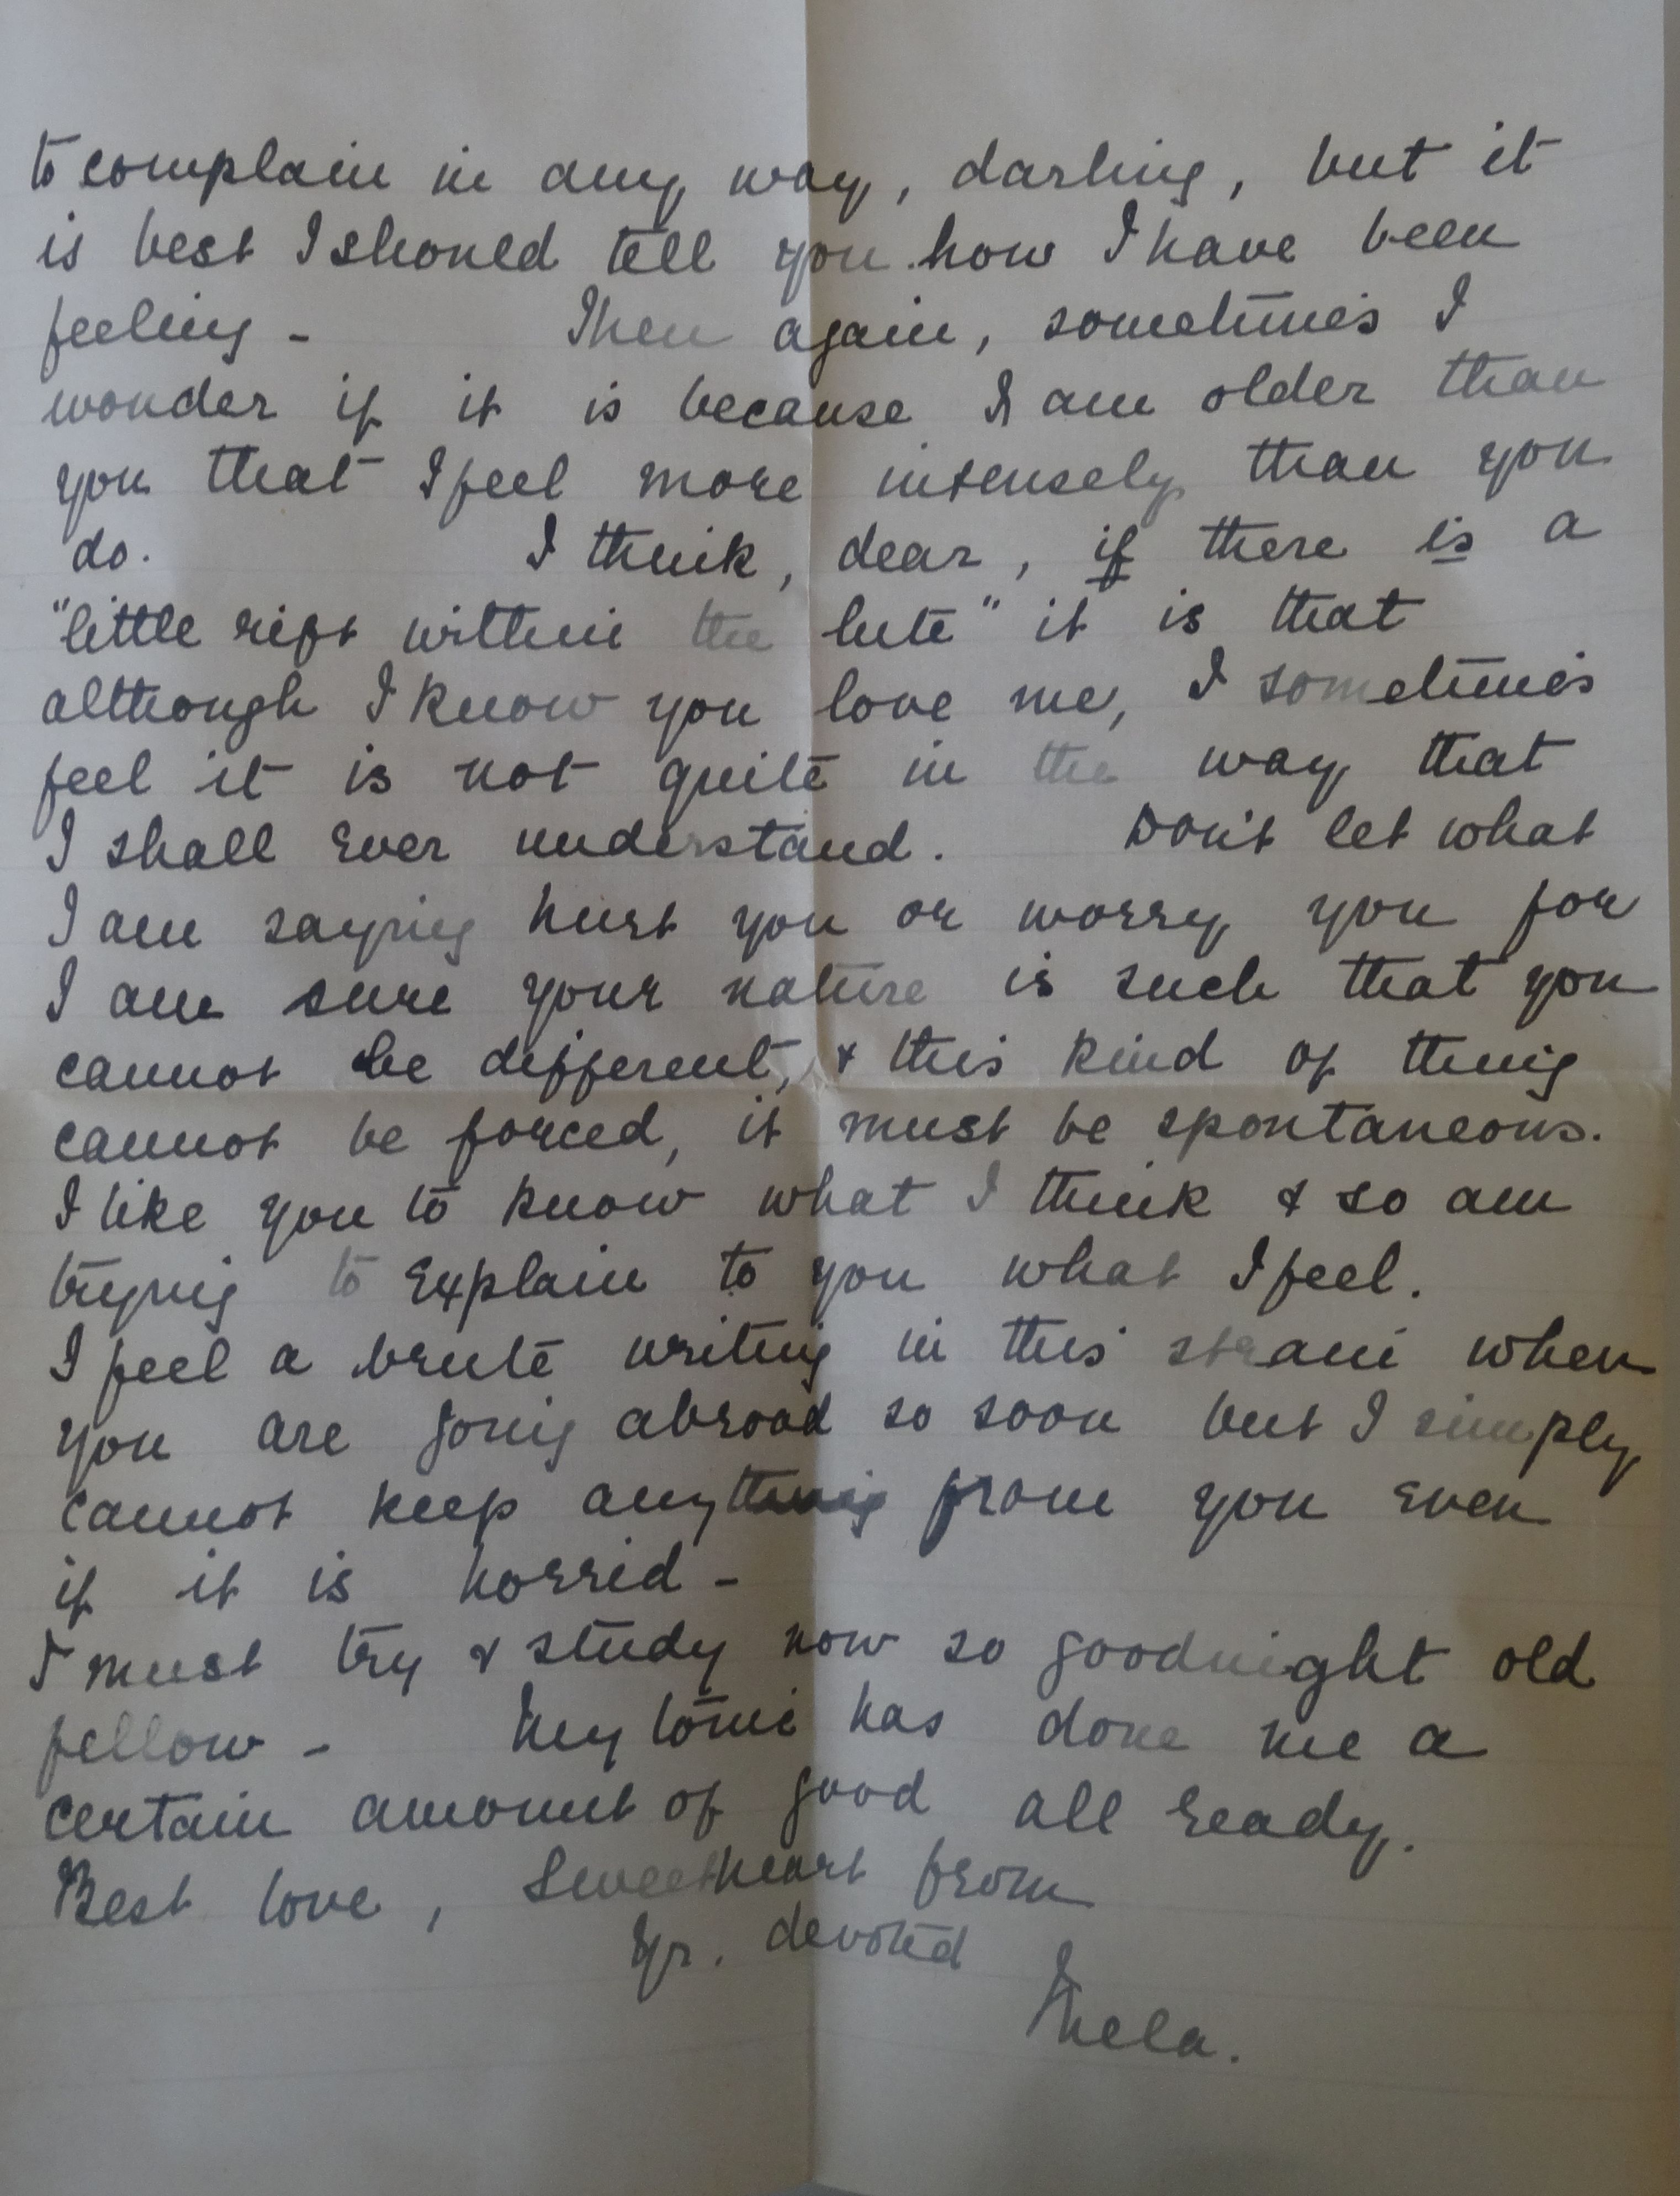 to complain in any way, darling, but it
is best I should tell you how I have been
feeling - Then again, sometimes I
wonder if it is because I am older than
you that I feel more intensely than you
do. I think, dear, if there is a
"little rift within the lute" it is that
although I know you love me, I sometimes
feel it is not quite in the way that
I shall ever understand. Don't let what
I am saying hurt you or worry you for
I am sure your nature is such that you
cannot be different, & this kind of thing
cannot be forced, it must be spontaneous.
I like you to know what I think & so am
trying to explain to you what I feel.
I feel a brute writing in this strain when
you are going abroad so soon but I simply
cannot keep anything from you even
if it is horrid -
I must try & study now so goodnight old
fellow - My tonic has done me a
certain amount of good all ready.
Best love, Sweetheart from
Yr. devoted
Thela.